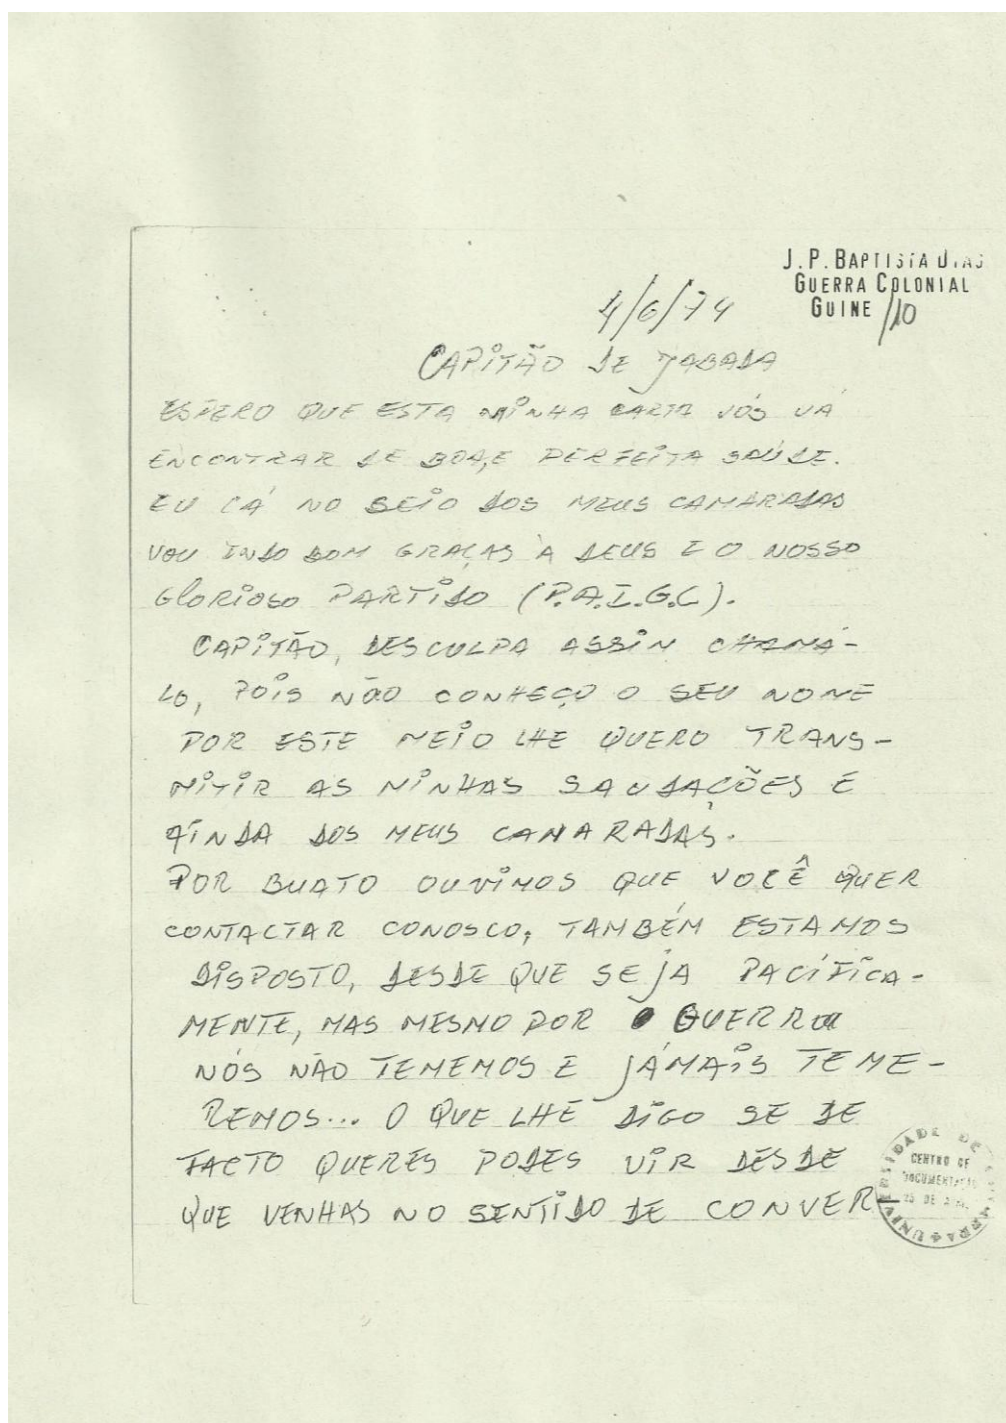 J.P. BAPTISTA DIAS
GUERRA COLONIAL
GUINE /10
4/6/74
CAPITÃO DE JABADA
ESPERO QUE ESTA MINHA CARTA VÓS VÁ
ENCONTRAR DE BOA, E PERFEITA SAÚDE.
EU CÁ NO SEIO DOS MEUS CAMARADAS
VOU INDO BOM GRAÇAS À DEUS E O NOSSO
GLORIOSO PARTIDO (P.A.I.G.C).
CAPITÃO, DESCULPA ASSIN CHAMÁ-
LO, POIS NÃO CONHEÇO O SEU NOME
POR ESTE MEIO LHE QUERO TRANS-
MITIR AS MINHAS SAUDAÇÕES E
AINDA DOS MEUS CAMARADAS.
POR BUATO OUVIMOS QUE VOCÊ QUER
CONTACTAR CONOSCO, TAMBÉM ESTAMOS
DISPOSTO, DESDE QUE SEJA PACÍFICA-
MENTE, MAS MESMO POR GUERRA
NÓS NÃO TEMEMOS E JÁMAIS TEME-
REMOS... O QUE LHE DIGO SE DE
FACTO QUERES PODES VIR DESDE
QUE VENHAS NO SENTIDO DE CONVER
UNIVERSIDADE DE COIMBRA
CENTRO DE
DOCUMENTAÇÃO
25 DE ABRIL